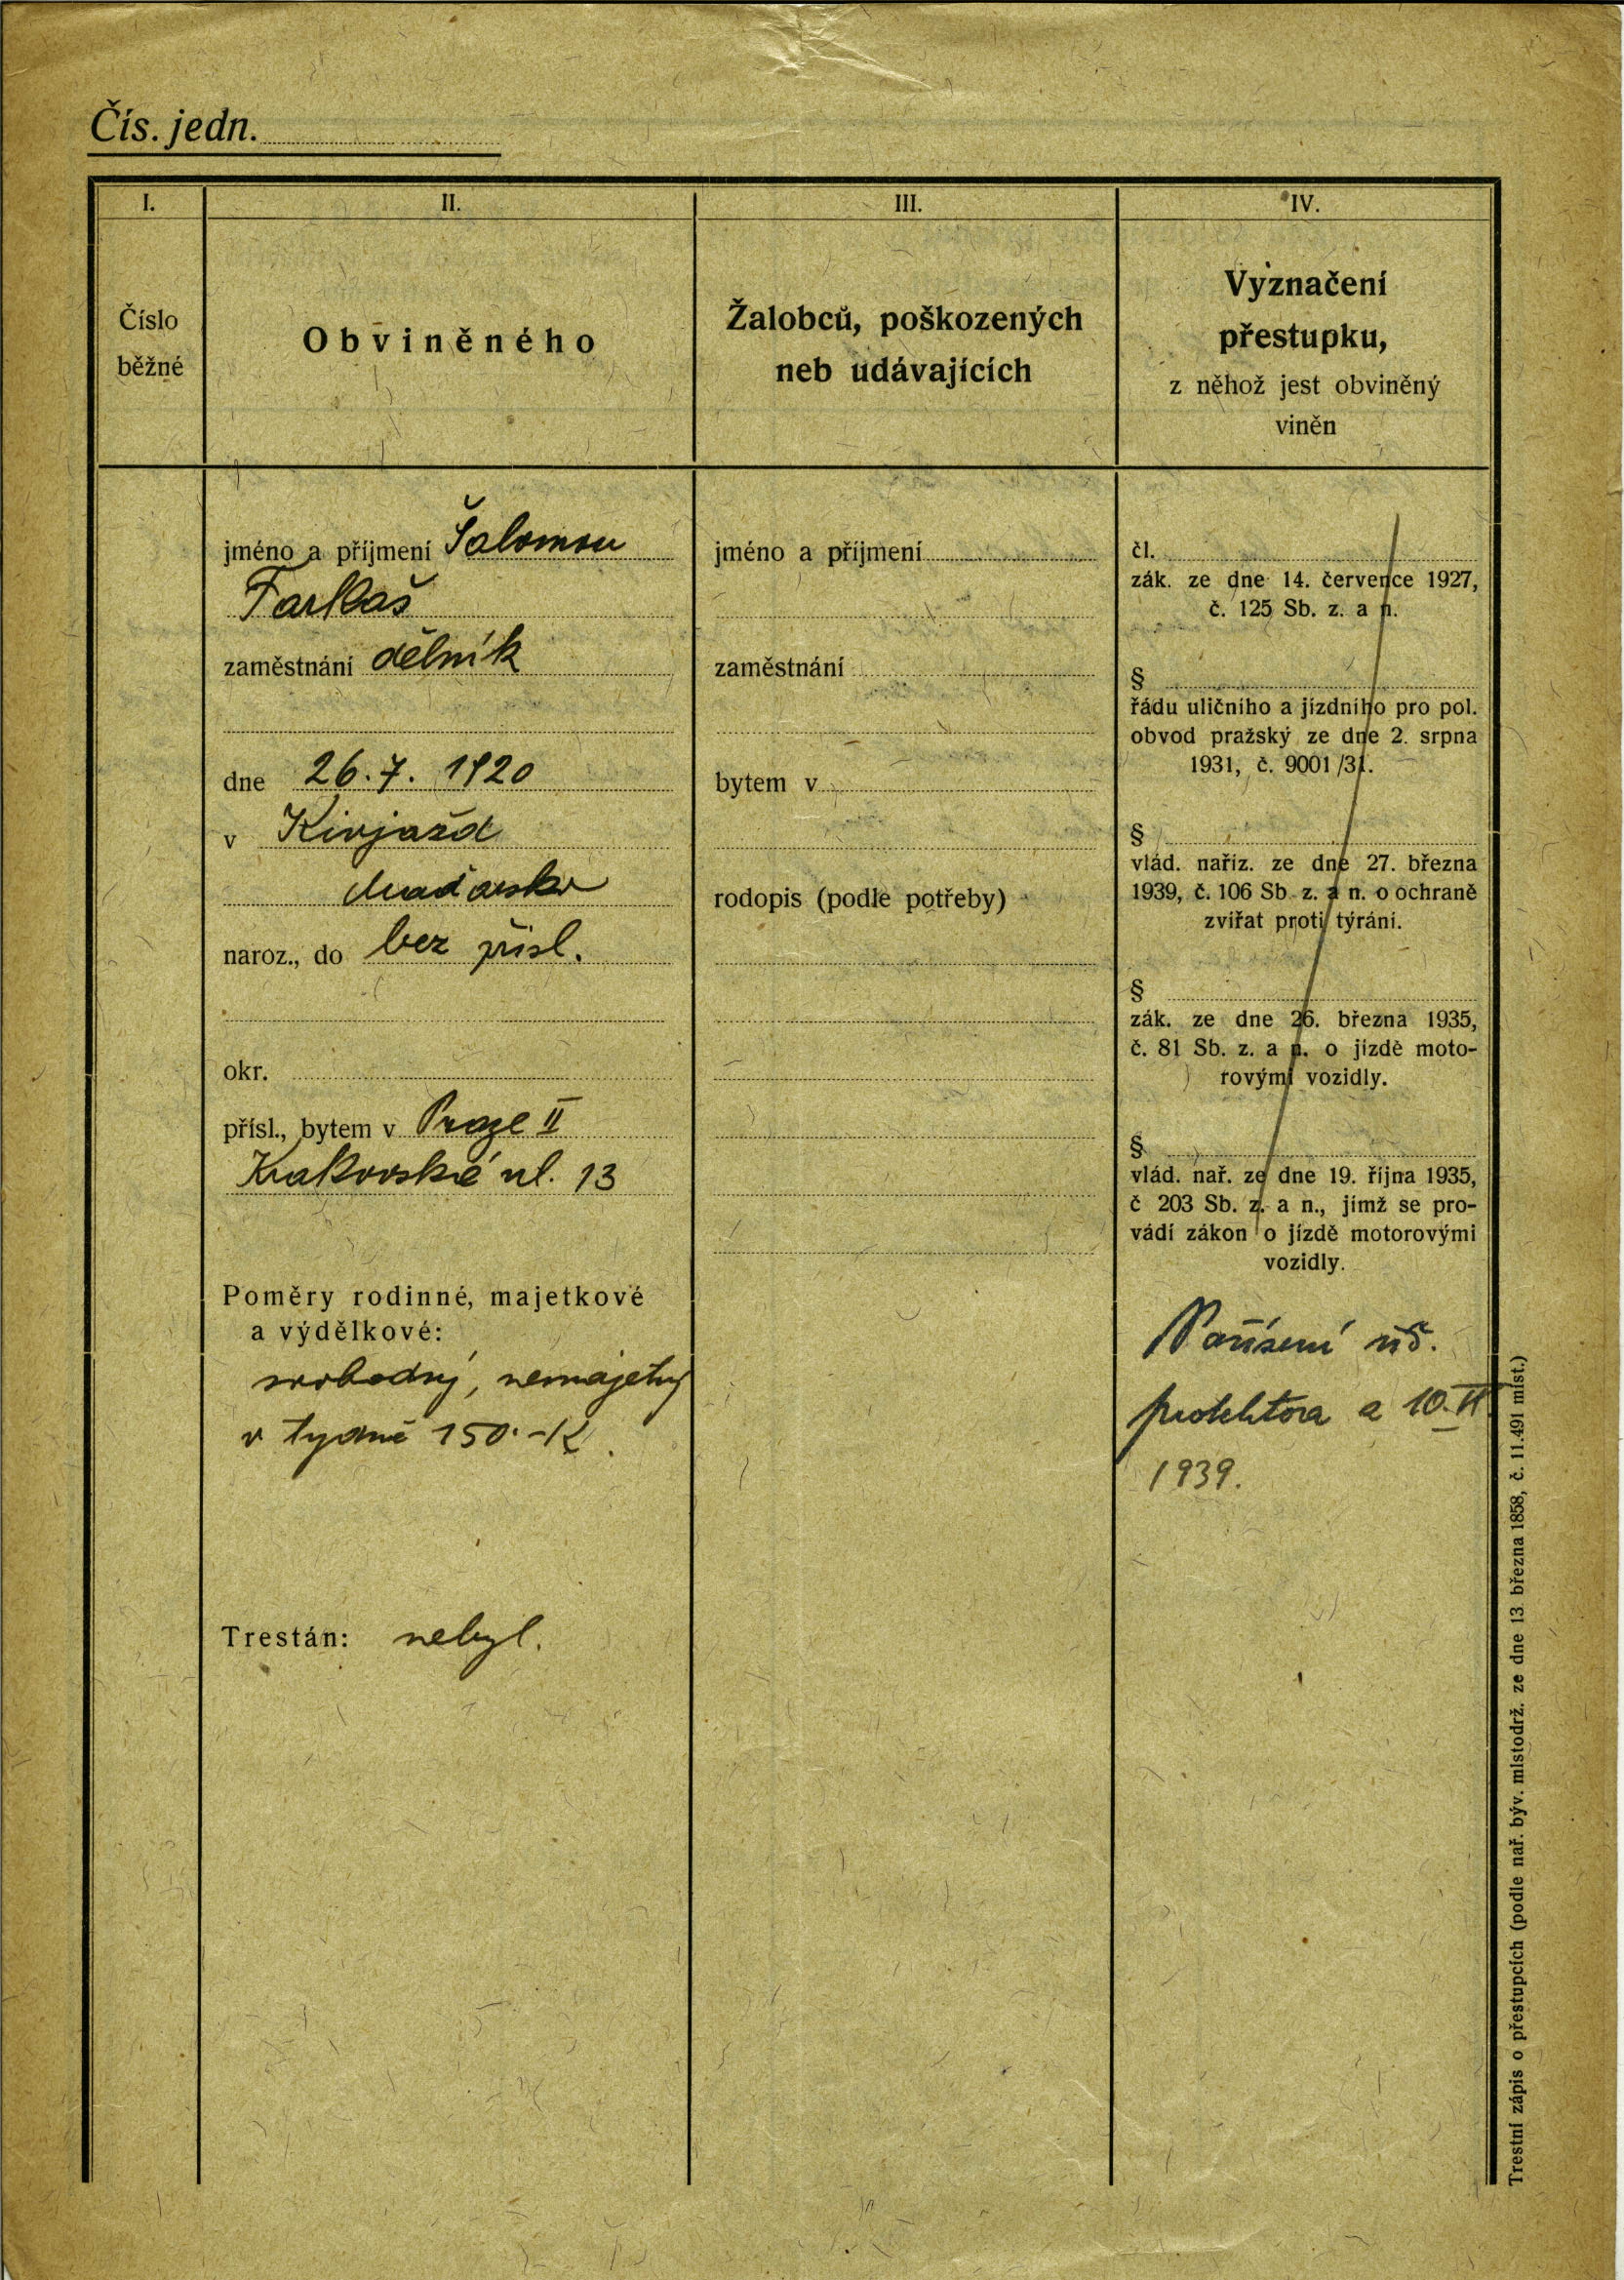 Čís. jedn.
I.
II.
III.
IV.
Číslo
běžné
Obviněného
Žalobců, poškozených
neb udávajících
Vyznačení
přestupku,
z něhož jest obviněný
viněn
jméno a příjmení Šalomon
Farkaš
zaměstnání dělník
dne 26.7. 1920
v Kivjažd
Maďarsko
naroz., do bez přísl.
okr.
přísl., bytem v Praze II
Krakovské ul. 13
Poměry rodinné, majetkové
a výdělkové:
svobodný, nemajetný
v týdně 150.-K.
Trestán: nebyl.
jméno a příjmení
zaměstnání
bytem v
rodopis (podle potřeby)
čl.
zák. ze dne 14. července 1927,
č. 125 Sb. z. a n.
§
řádu uličního a jízdního pro pol.
obvod pražský ze dne 2. srpna
1931, č. 9001/31.
§
vlád. naříz. ze dne 27. března
1939, č. 106 Sb. z. a n. o ochraně
zvířat proti týrání.
§
zák. ze dne 26. března 1935,
č. 81 Sb. z. a n. o jízdě moto-
rovými vozidly.
§
vlád. nař. ze dne 19. října 1935,
č 203 Sb. z. a n., jímž se pro-
vádí zákon o jízdě motorovými
vozidly.
Nařízení říš.
protektora a 10.
1939.
Trestní zápis o přestupcích (podle nař. býv. místodrž. ze dne 13 března 1858, č. 11.491 míst.)